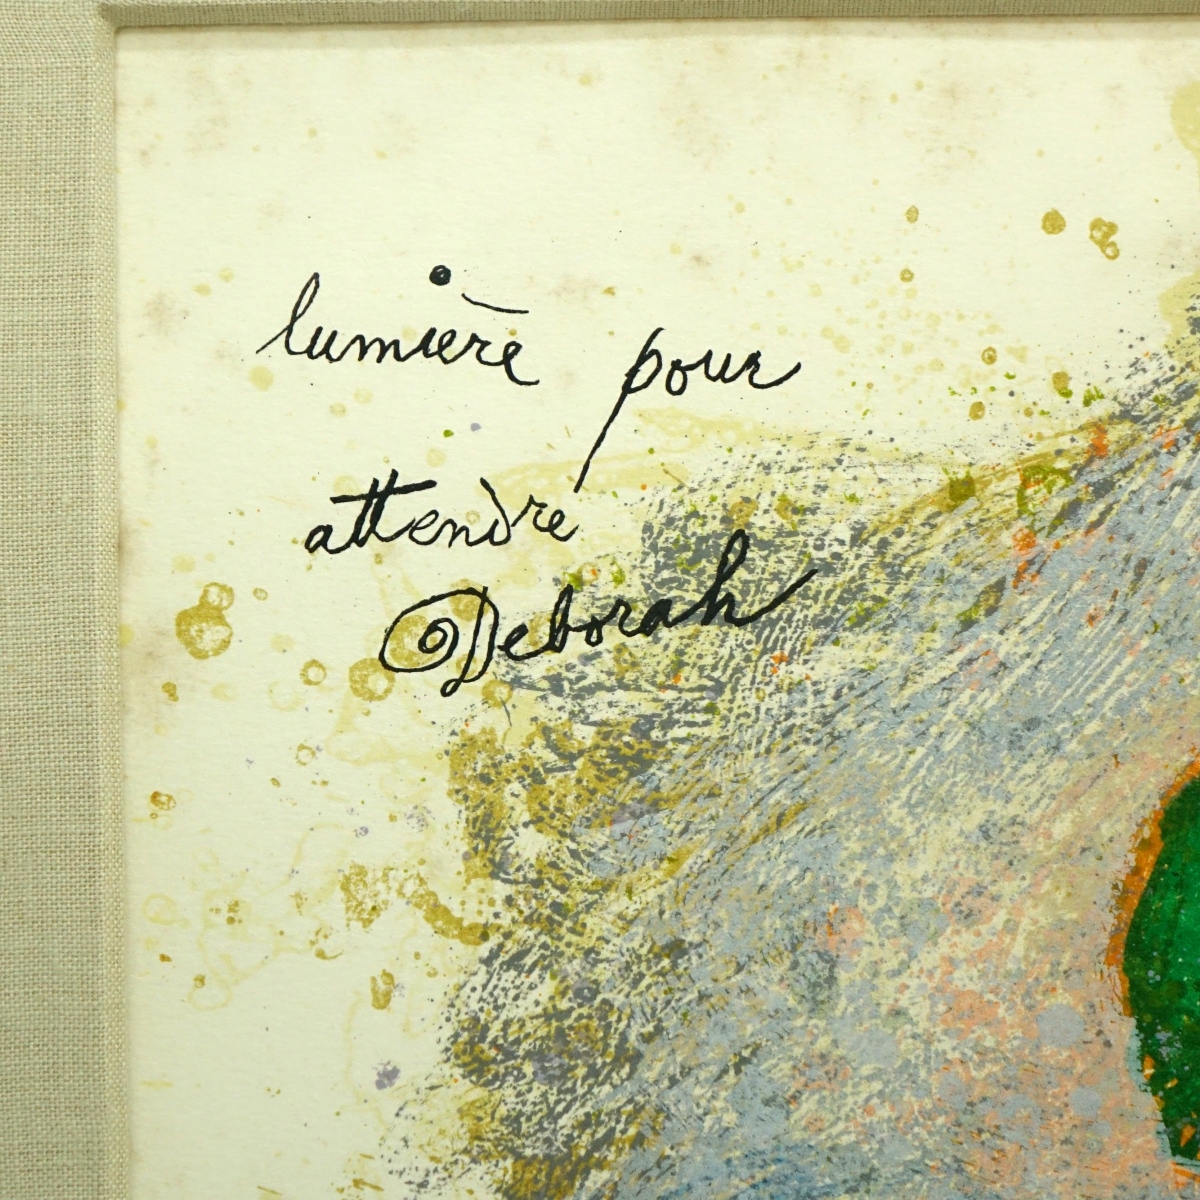 lumière pour
attendre
Deborah